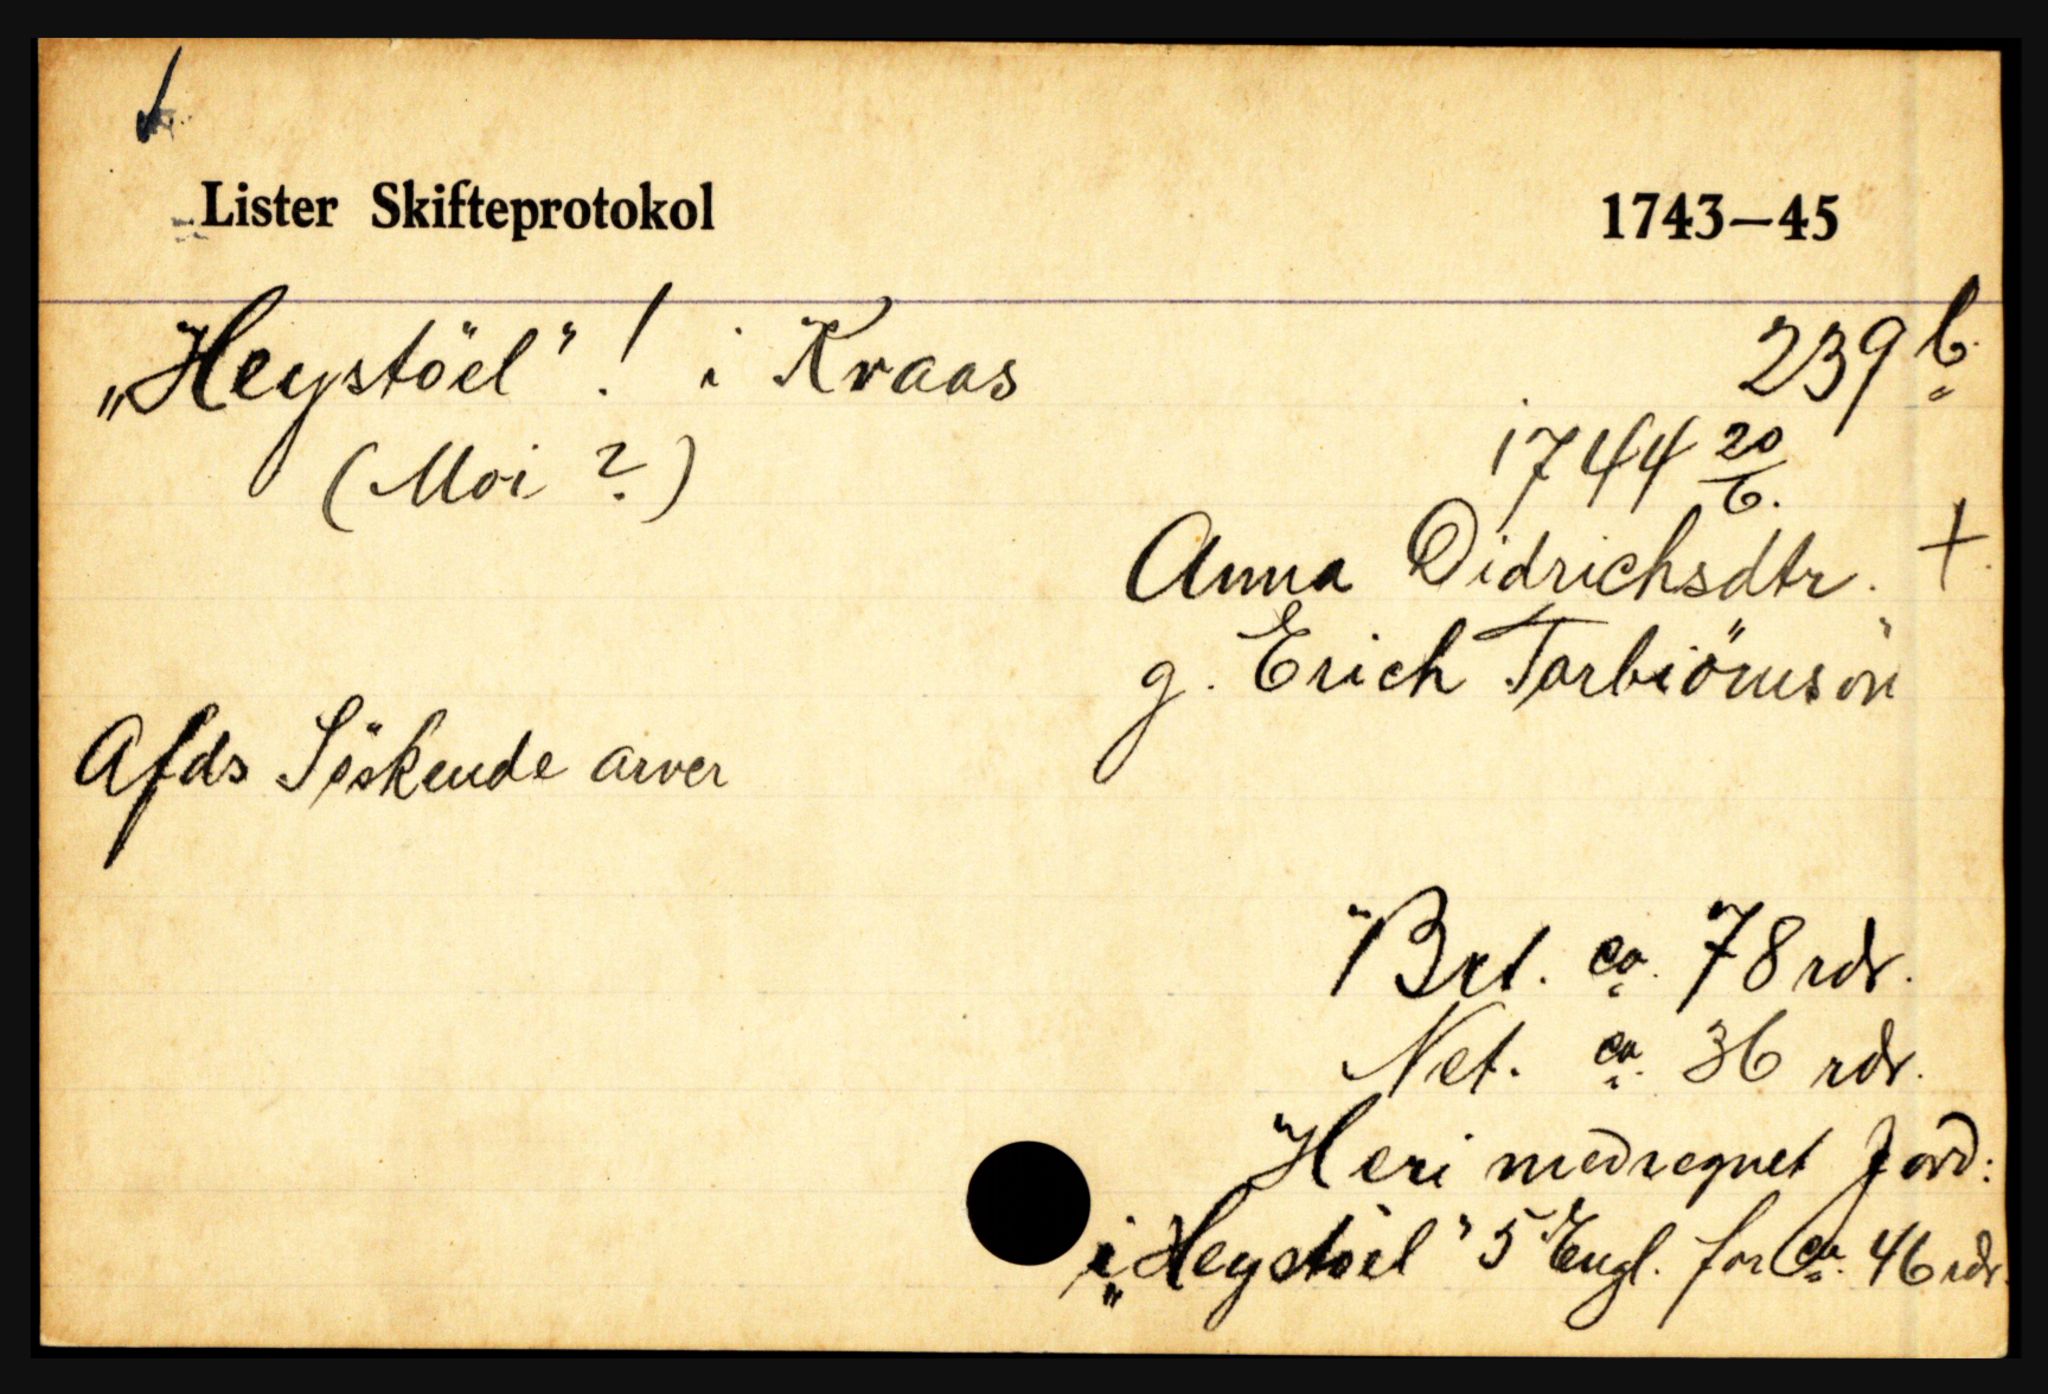 Lister Skifteprotokol 1743—45
„Heystöel"! i Kraas 239 b.
(Moi ?)
1744 20/6.
Anna Didrichsdtr. +.
g. Erich Torbiörnsön
Afds Söskende arver
Brt. ca. 78 rdr.
Net. ca. 36 rdr.
Heri medregnet Jord:
i „Heystöel" 5 Engl. for ca. 46 rdr.